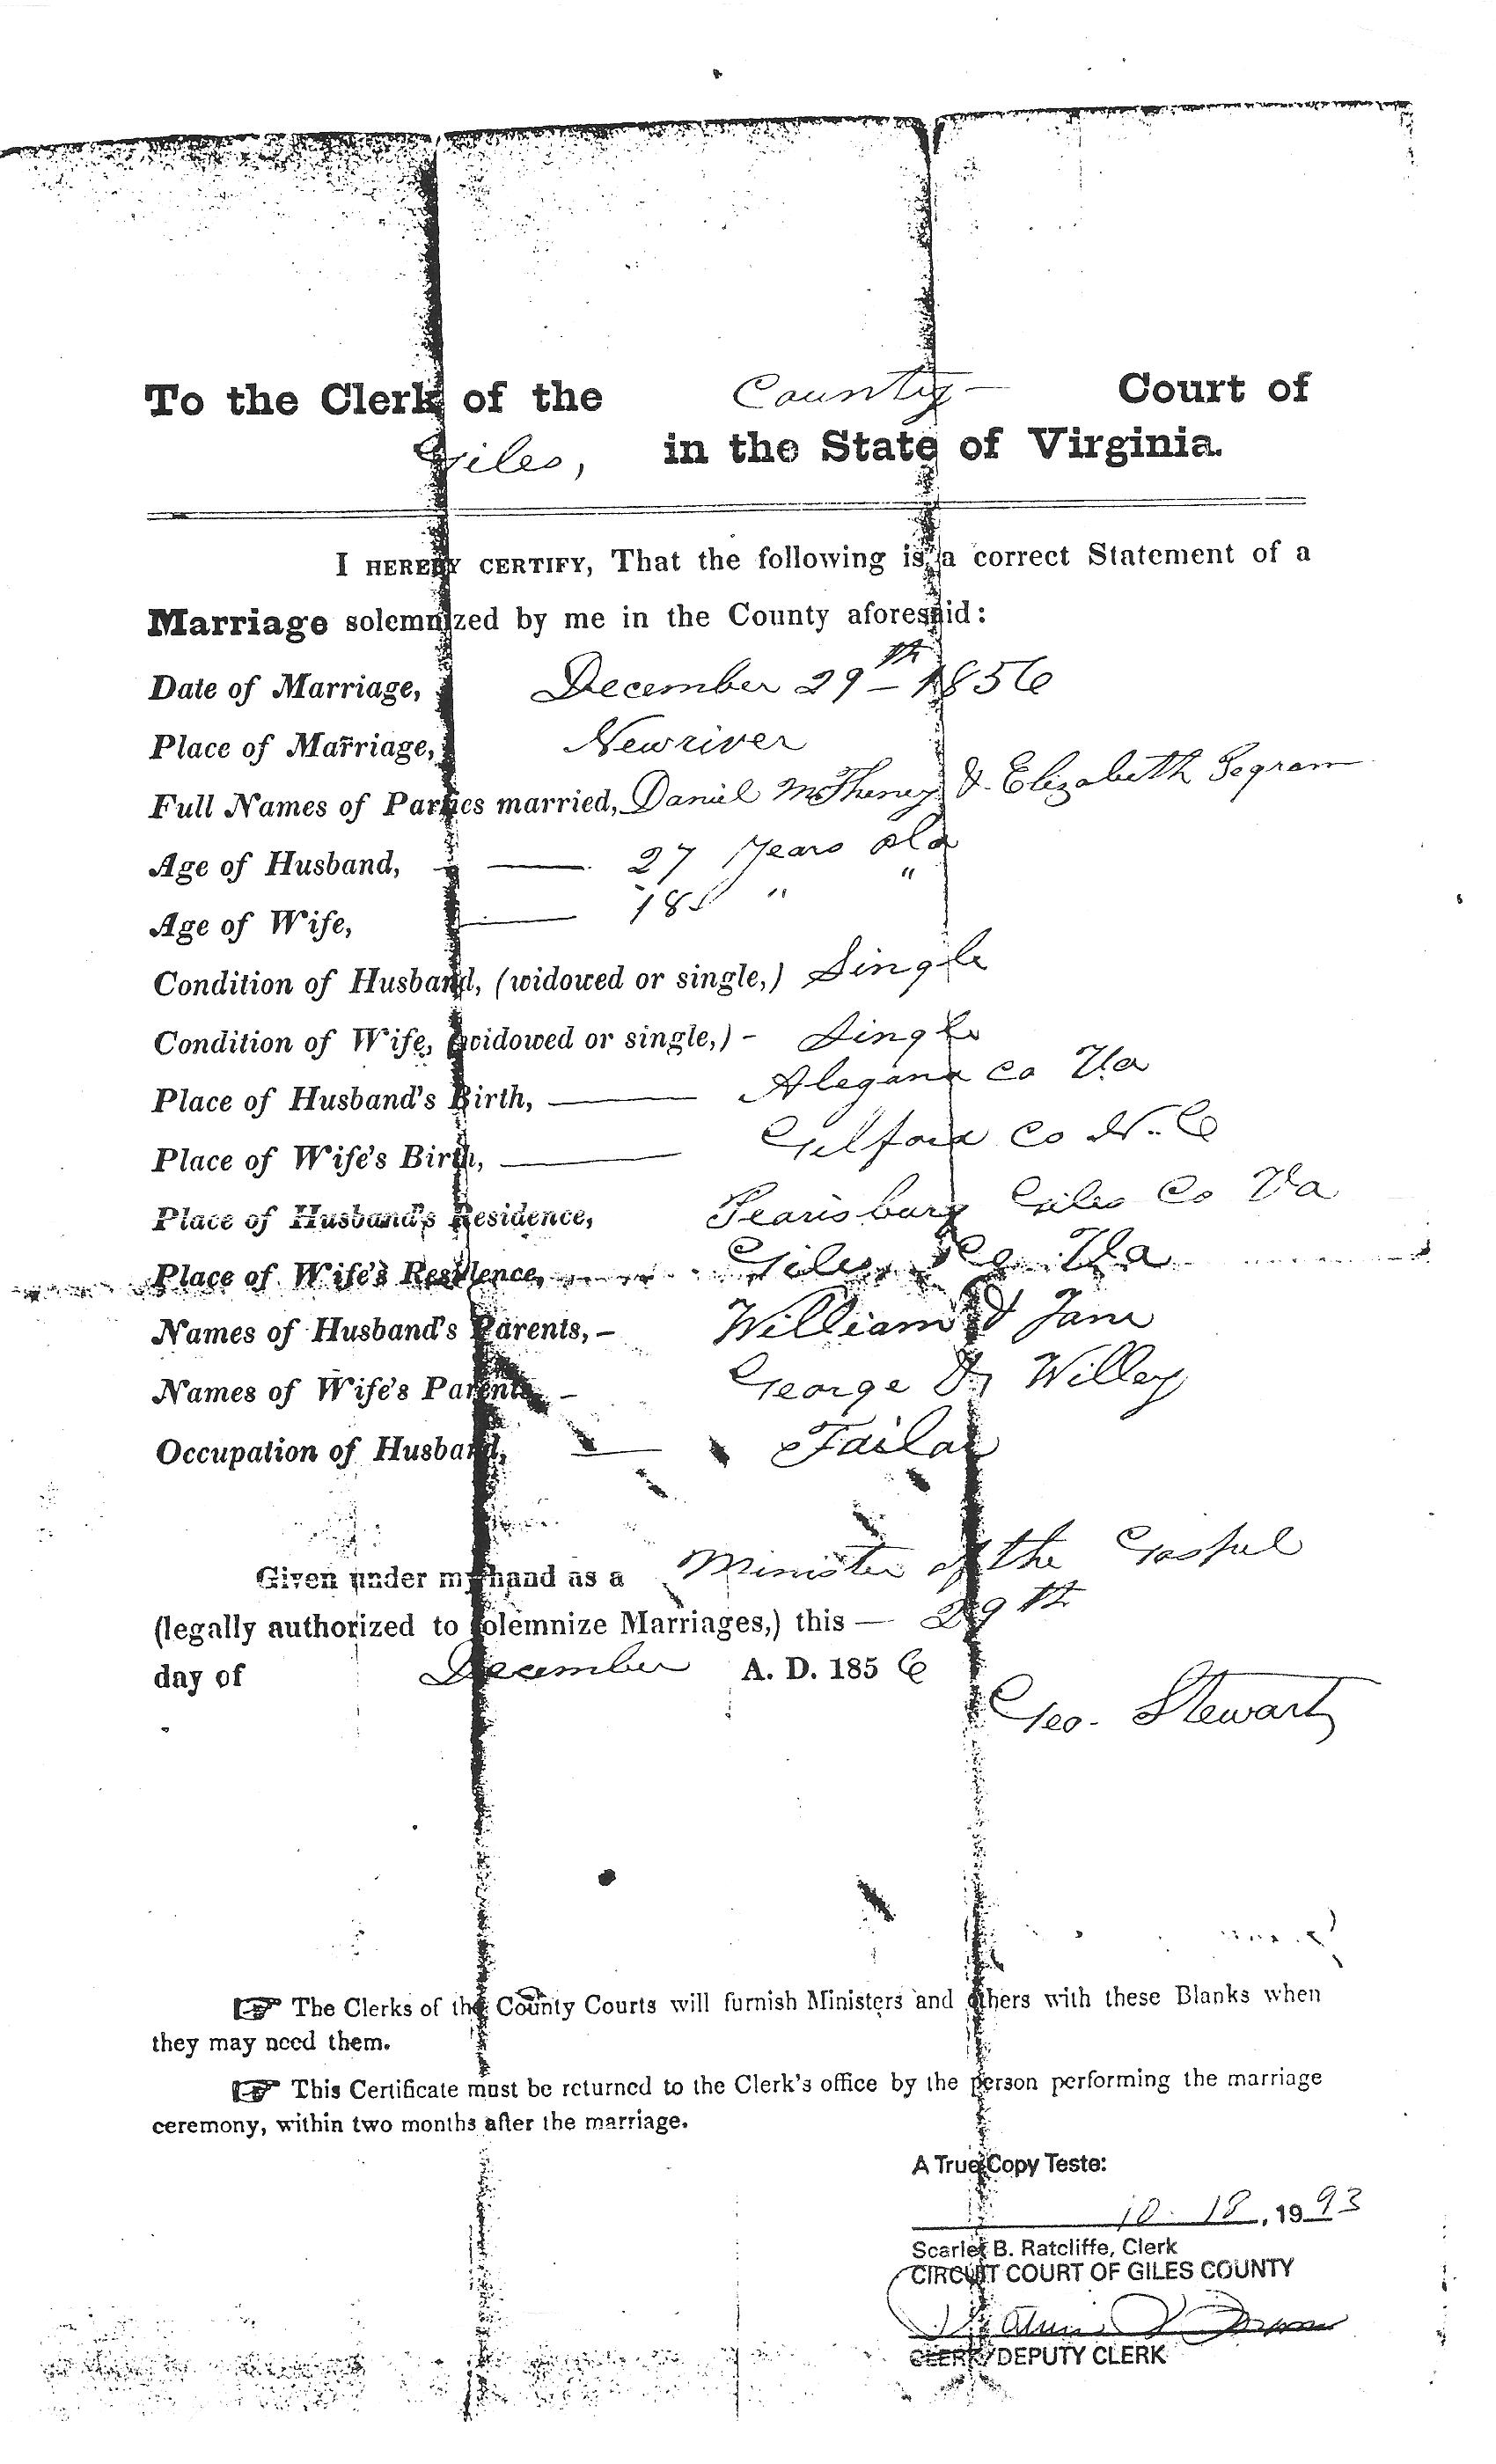 To the Clerk of the County Court of
Giles, in the State of Virginia.
I HEREBY CERTIFY, That the following is a correct Statement of a
Marriage solemnized by me in the County aforesaid:
Date of Marriage, December 29th 1856
Place of Marriage, Newriver
Full Names of Parties married, Daniel McPheney & Elizabeth Pegram
Age of Husband, 27 years old
Age of Wife, 18 " "
Condition of Husband, (widowed or single,) Single
Condition of Wife, (widowed or single,) - Single
Place of Husband's Birth, Alegana Co Va
Place of Wife's Birth, Gilford Co N.C
Place of Husband's Residence, Pearisburg Giles Co Va
Place of Wife's Residence, Giles Co Va
Names of Husband's Parents, - William & Jane
Names of Wife's Parents, - George & Willey
Occupation of Husband, Tailor
Given under my hand as a Minister of the Gospel
(legally authorized to solemnize Marriages,) this — 29th
day of December A. D. 1856
Geo. Stewart
☞ The Clerks of the County Courts will furnish Ministers and others with these Blanks when
they may need them.
☞ This Certificate must be returned to the Clerk's office by the person performing the marriage
ceremony, within two months after the marriage.
A True Copy Teste:
10-18, 1993
Scarlet B. Ratcliffe, Clerk
CIRCUIT COURT OF GILES COUNTY
CLERK/DEPUTY CLERK